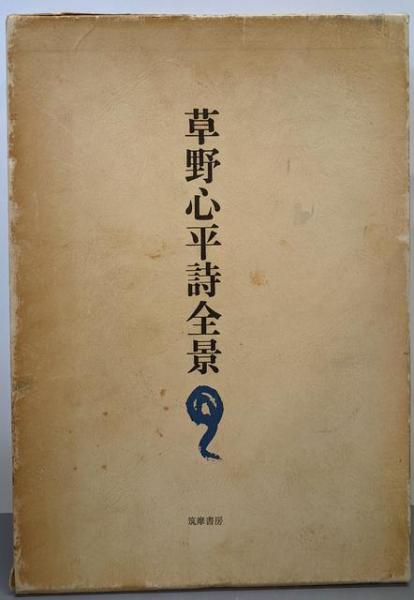 草野心平詩全景
筑摩書房